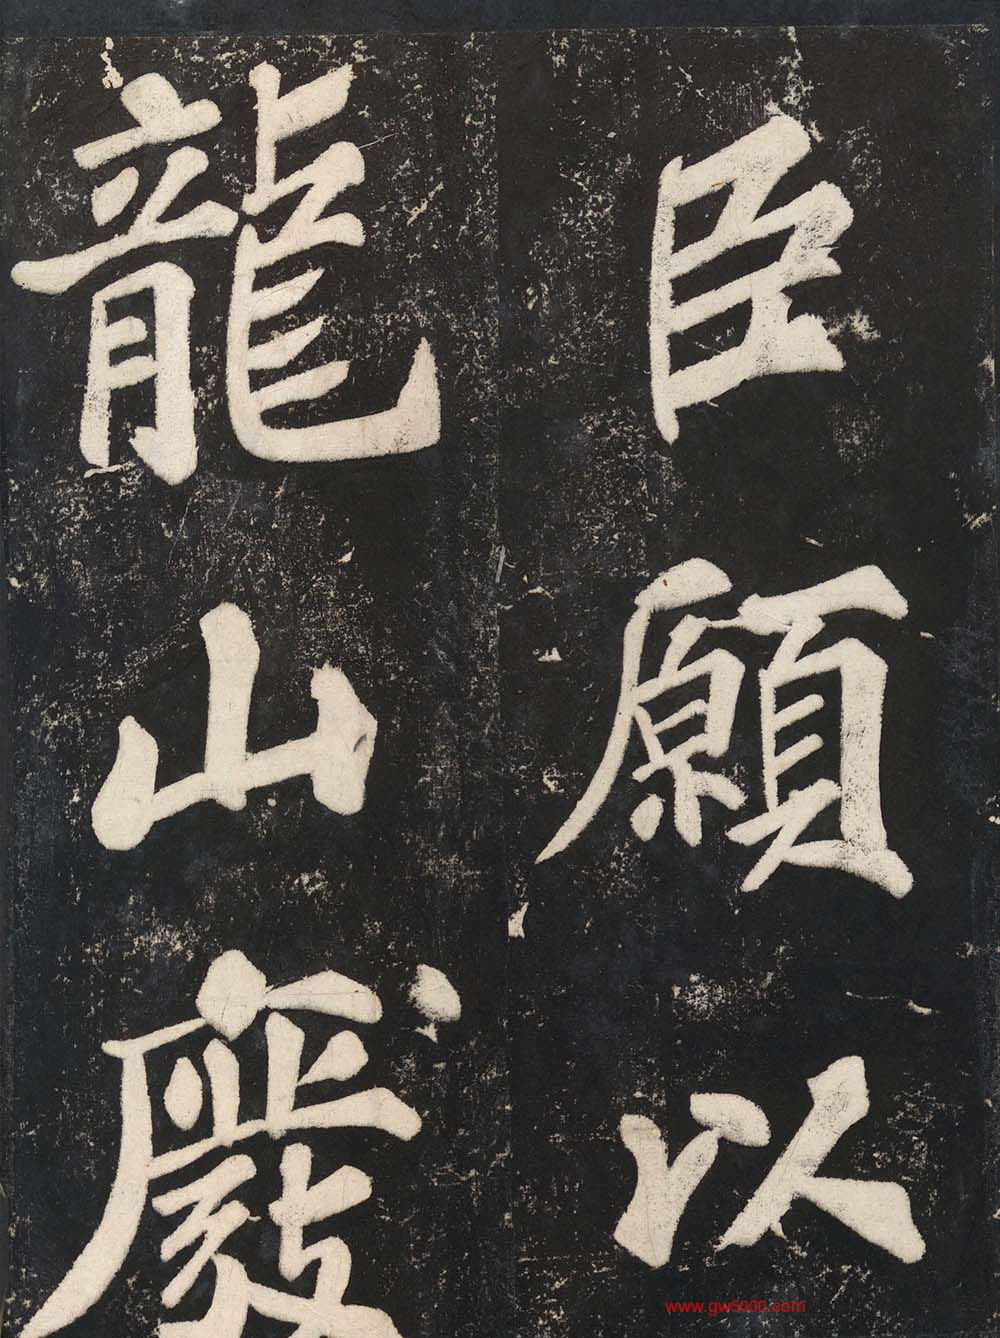 臣願以
龍山廢
www.gw5000.com